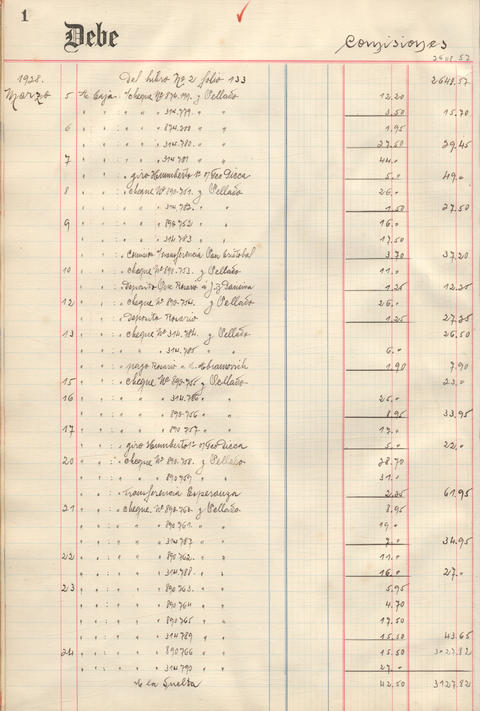 1
Debe
Comisiones
2648.57
1928. Del libro Nº 2 folio 133 2648.57
Marzo 5 A Caja: Cheque Nº 874.199. y Sellado 12.20
" " : " " " 314.779. " " 3.50 15.70
6 " " : " " " 874.200 " " 1.95
" " : " " " 314.780. " " 27.50 29.45
7 " " : " " " 314.781 " " 44.-
" " : giro Humberto 1º 5.- 49.-
8 " " : cheque Nº 890.751. y Sellado 26.-
" " : " " " 314.782. " " 1.50 27.50
9 " " : " " " 890.752 " " 16.-
" " : " " " 314.783 " " 17.50
" " : Transferencia San Cristobal 3.70 37.20
10 " " : cheque Nº 890.753. y Sellado 11.-
" " : deposito Rosario 1.25 12.25
12 " " : cheque Nº 890.754. y Sellado 26.-
" " : deposito Rosario 1.25 27.25
13 " " : cheque Nº 314.784. y Sellado 26.50
" " : " " " 314.785 " " 6.-
" " : pago Rosario 1.90 7.90
15 " " : cheque Nº 890.755 y Sellado 23.-
16 " " : " " " 314.786 " " 25.-
" " : " " " 890.756 " " 8.95 33.95
17 " " : " " " 890.757. " " 17.-
" " : giro Humberto 1º 5.- 22.-
20 " " : cheque Nº 890.758. y Sellado 28.70
" " : " " " 890.759 " " 31.-
" " : Transferencia Esperanza 2.25 61.95
21 " " : cheque. Nº 890.760. y Sellado 8.95
" " : " " " 890.761. " " 19.-
" " : " " " 314.787 " " 7.- 34.95
22 " " : " " " 890.762. " " 11.-
" " : " " " 314.788. " " 16.- 27.-
23 " " : " " " 890.763. " " 5.95
" " : " " " 890.764 " " 4.70
" " : " " " 890.765 " " 17.50
" " : " " " 314.789 " " 15.50 43.65
24 " " : " " " 890.766 " " 15.50 3127.82
" " : " " " 314.790 " " 27.-
A la Vuelta 42.50 3127.82